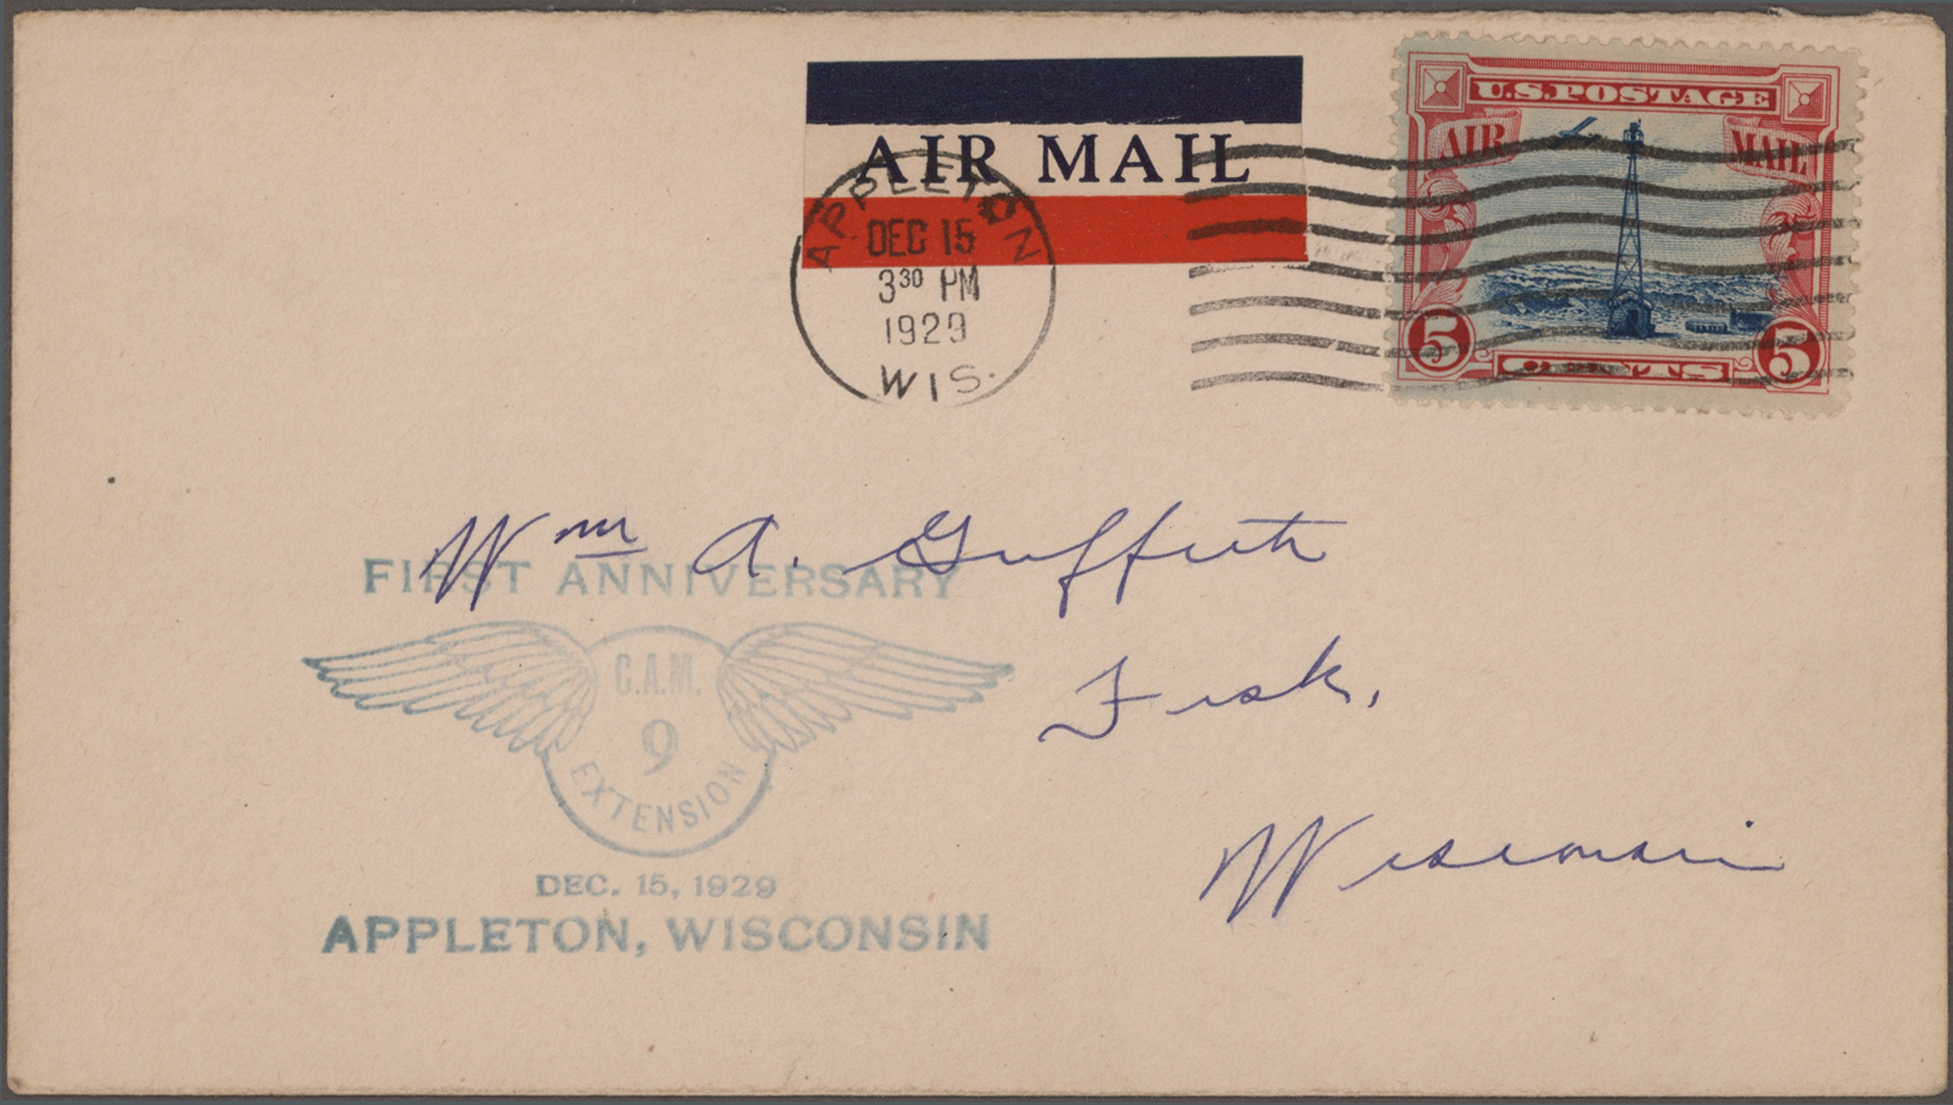 U.S.POSTAGE
AIR MAIL
5 CENTS 5
AIR MAIL
APPLETON
DEC 15
3 30 PM
1929
WIS.
Wm A. Griffith
Fisk,
Wisconsin
FIRST ANNIVERSARY
C.A.M.
9
EXTENSION
DEC. 15, 1929
APPLETON, WISCONSIN